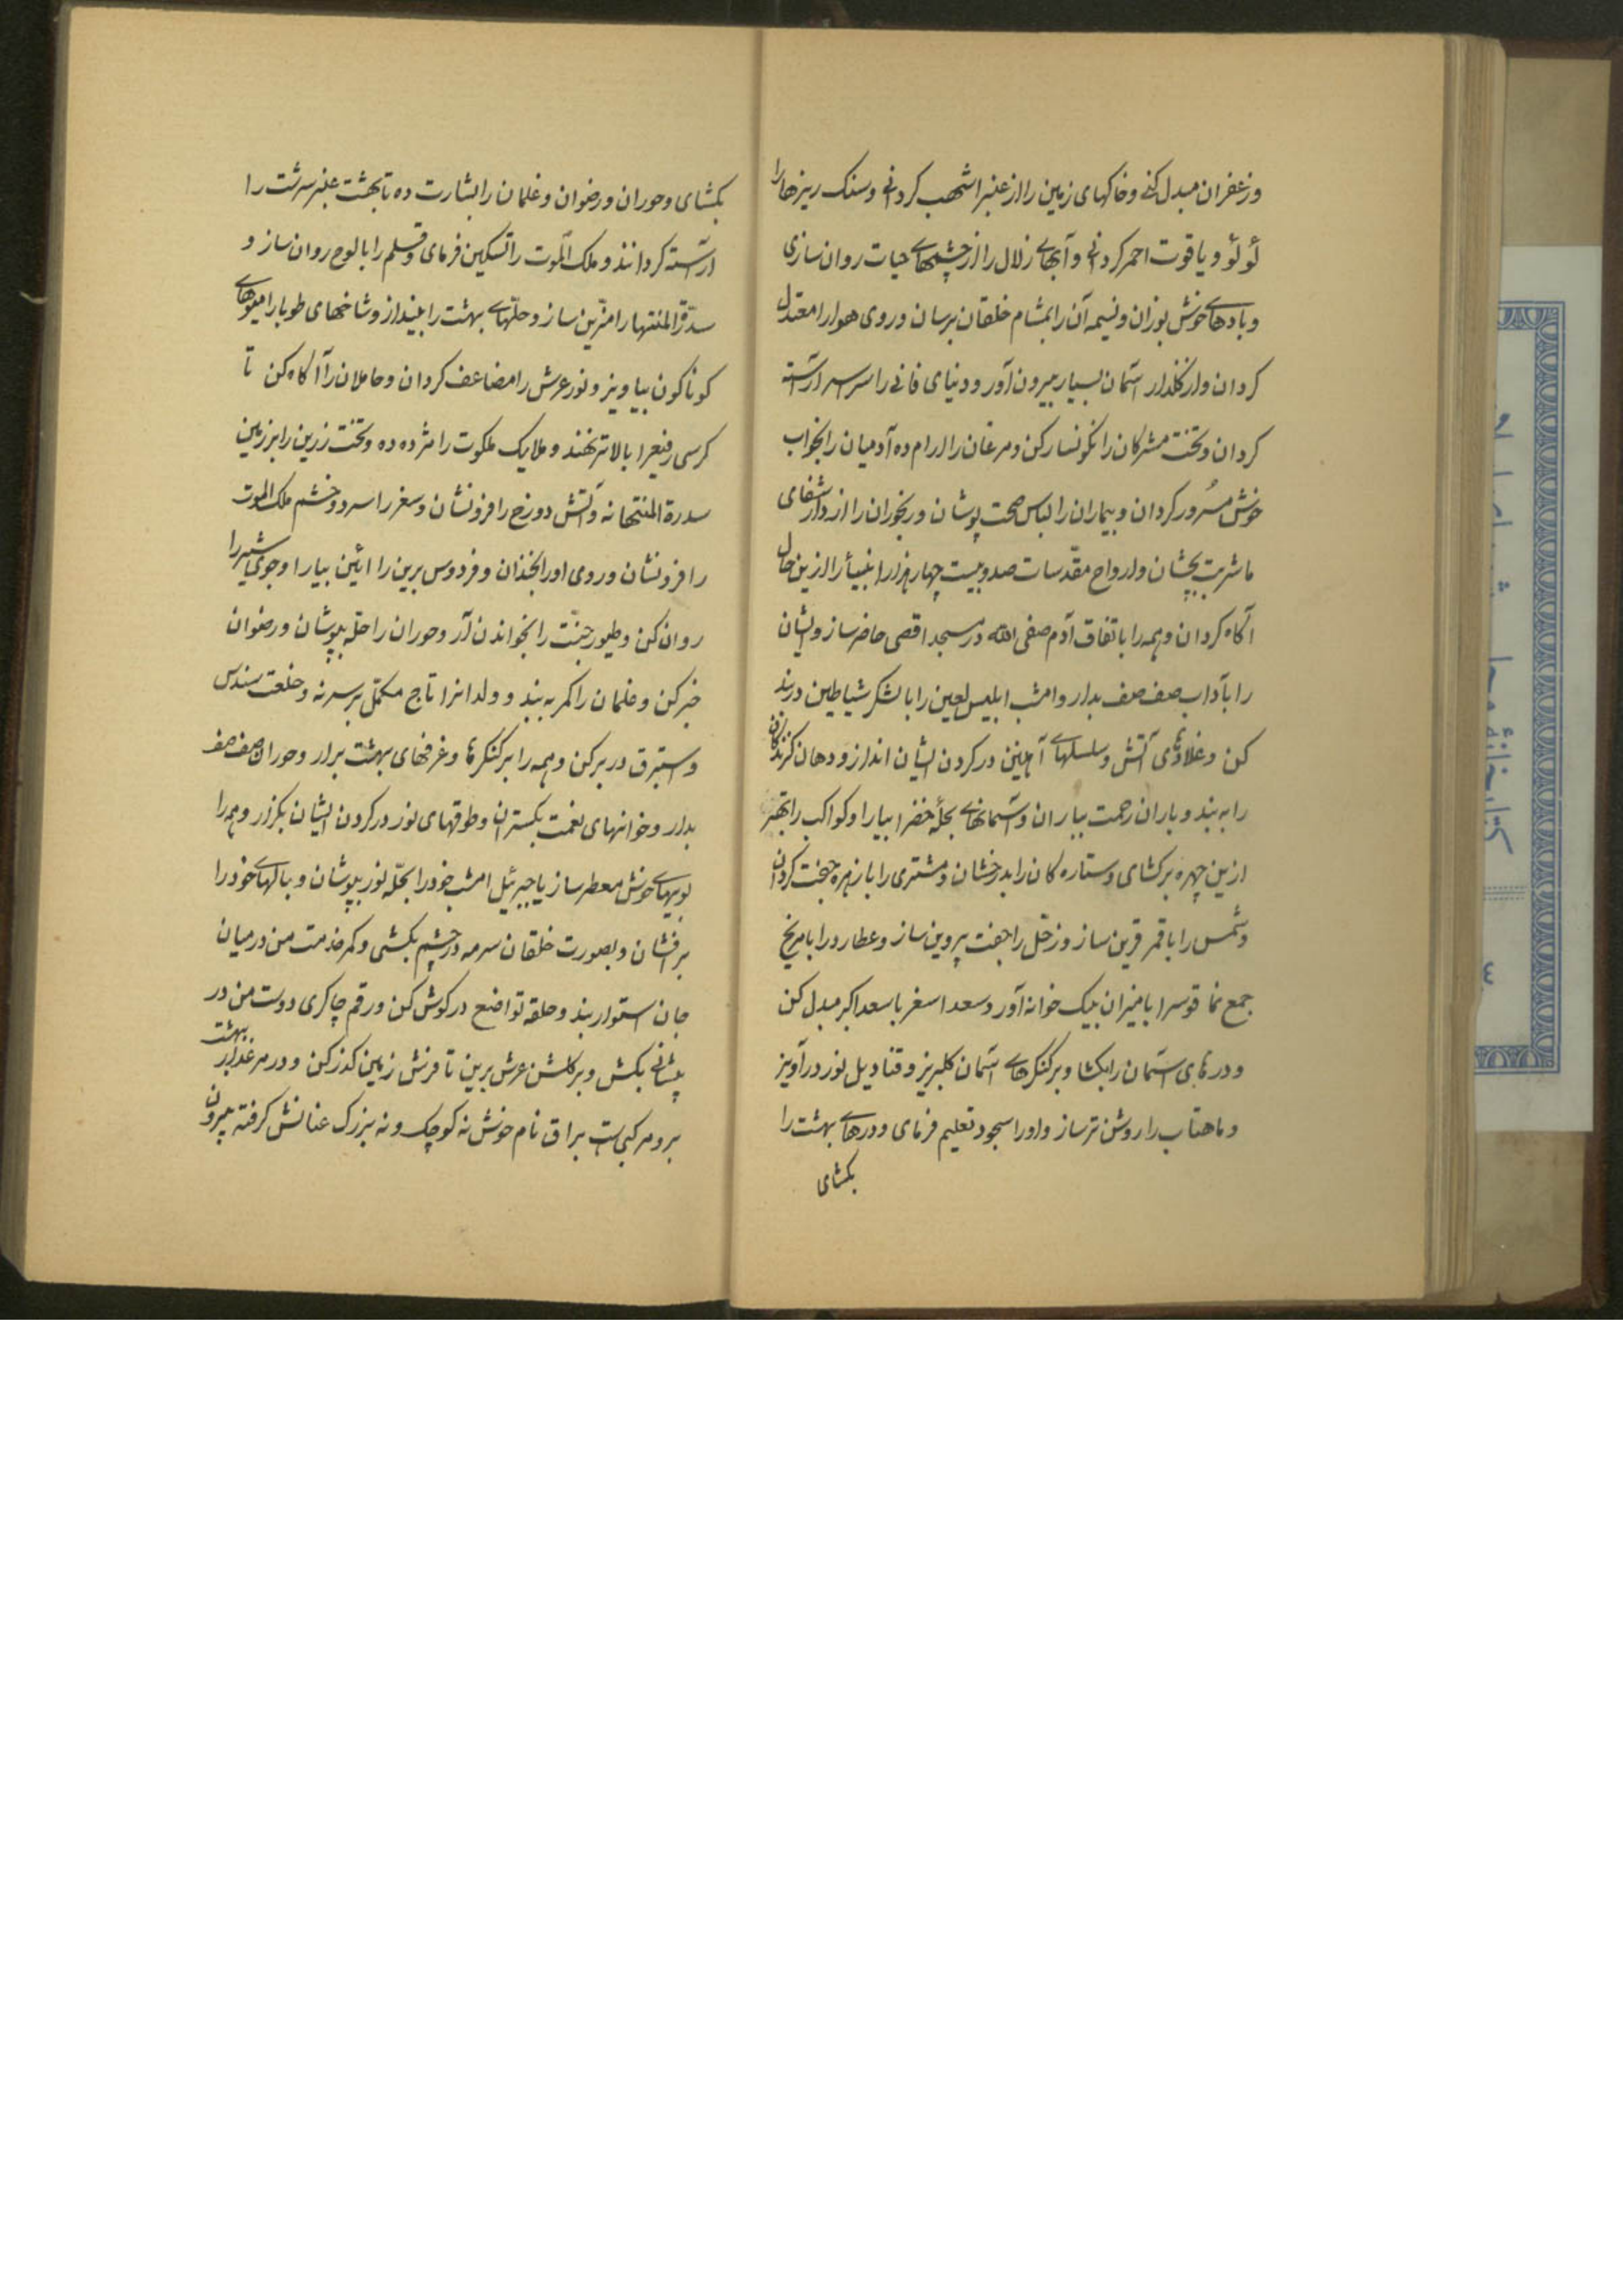 وزعفران مبدل کنی وخاکهای زمین را از عنبر اشهب کردانی وسنک ریزها را
لؤلؤ و یاقوت احمر کردانی و آبهای زلال را از چشمهای حیات روان سازی
وبادهای خوش بوزان ونسیم آن را بمشام خلقان برسان وروی هوا را معتدل
کردان واز کلذار آسمان بسیار بیرون آور ودنیای فانی را سراسر آراسته
کردان وتخت مشرکان را نکونسار کن ومرغان را آرام ده آدمیان را بخواب
خوش مسُرور کردان وبیماران را لباس صحت پوشان ورنجوران را از دار شفای
ما شربت بچشان وارواح مقدّسات صد وبیست چهار هزار انبیأ را ازین حال
آکاه کردان وهمه را باتفاق آدم صفی الله در مسجد اقصی حاضر ساز وایشان
را بآداب صف صف بدار وامشب ابلیس لعین را با لشکر شیاطین در بند
کن وغلادهای آتش وسلسلهای آهنین در کردن ایشان انداز ودهان کزندکان
را به بند وباران رحمت بباران وآسمانهای بحلّهٔ خضرا بیارا وکواکب را بهتر
ازین چهره برکشای وستاره کان را بدرخشان ومشتری را با زهره جفت کردان
وشمس را با قمر قرین ساز وزحل را جفت پروین ساز وعطارد را با مریخ
جمع نما قوسرا با میزان بیک خوانه آور وسعد اسغر با سعد اکبر مبدل کن
ودرهای آسمان را بکشا وبر کنکرهای آسمان کلبریز وقنادیل نور در آویز
وماهتاب را روشن تر ساز واورا سجود تعلیم فرمای ودرهای بهشت را
بکشای
بکشای وحوران ورضوان وغلمان را بشارت ده تا بهشت عنبر سرشت را
آراسته کردانند وملک الموت را تسکین فرمای وقلم را با لوح روان ساز و
سدرة المنتها را مزّین ساز وحلّهای بهشت را بینداز وشاخهای طوبا را میوهای
کوناکون بیاویز ونور عرش را مضاعف کردان وحاملان را آکاه کن تا
کرسی رفیع را بالا تر نهند وملایک ملکوت را مژده ده وتخت زرین را بر زمین
سدرة المنتها نه وآتش دوزخ را فرو نشان وسغر را سرد وخشم ملک الموت
را فرو نشان وروی اورا بخندان وفردوس برین را ائین بیارا وجوی شیر را
روان کن وطیور جنّت را بخواندن آر وحوران را حلّه بپوشان ورضوان
خبر کن وغلمان را کمر به بند وولدانرا تاج مکمّل بر سر نه وخلعت سندس
واستبرق در بر کن وهمه را بر کنکرها وغرفهای بهشت برار وحوران صف صف
بدار وخوانهای نعمت بکستران وطوقهای نور در کردن ایشان بکزار وهمه را
بویهای خوش معطر ساز یا جبرئیل امشب خود را بحلّه نور بپوشان وبالهای خود را
برافشان وبصورت خلقان سرمه در چشم بکشی وکمر خذمت من در میان
جان استوار بند وحلقه تواضع در کوش کن ورقم چاکری دوست من در
پیشانی بکش وبر کلشن عرش برین تا فرش زمین کذر کن ودر مرغذار بهشت
برو مرکبی است براق نام خوش نه کوچک ونه بزرک عنانش کرفته بیرون